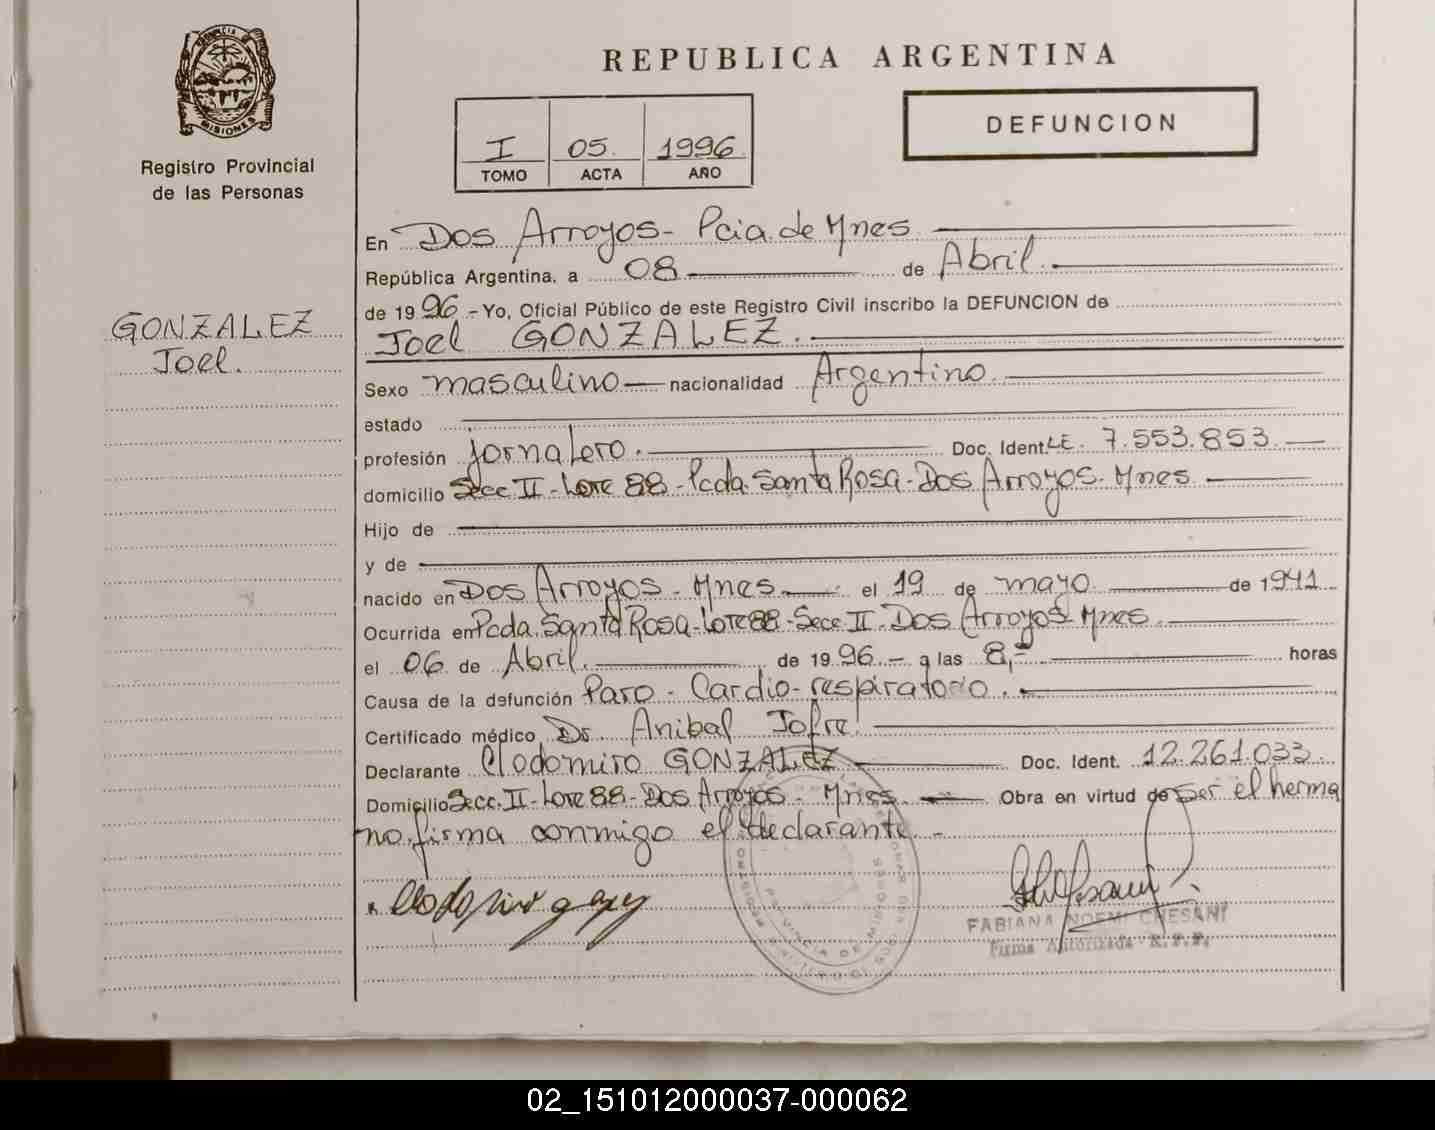 PROVINCIA DE
MISIONES
Registro Provincial
de las Personas
GONZALEZ
Joel.
REPUBLICA ARGENTINA
I 05. 1996.
TOMO ACTA AÑO
DEFUNCION
En Dos Arroyos - Pcia. de Mnes
República Argentina, a 08 de Abril.
de 1996 - Yo, Oficial Público de este Registro Civil inscribo la DEFUNCION de
Joel GONZALEZ.
Sexo masculino nacionalidad Argentino.
estado
profesión Jornalero. Doc. Ident. L.E. 7.553.853.
domicilio Secc. II - Lote 88 - Pcda. Santa Rosa - Dos Arroyos - Mnes
Hijo de
y de
nacido en Dos Arroyos - Mnes. el 19 de mayo de 1941
Ocurrida en Pcda. Santa Rosa - Lote 88 - Secc. II. Dos Arroyos - Mnes.
el 06 de Abril. de 1996. - a las 8,- horas
Causa de la defunción Paro - Cardio - respiratorio.
Certificado médico Dr. Anibal Jofre
Declarante Clodomiro GONZALEZ Doc. Ident. 12.261.033.
Domicilio Secc. II - Lote 88 - Dos Arroyos - Mnes. Obra en virtud de ser el herma
no, firma conmigo el declarante -
PROVINCIA DE MISIONES
FABIANA NOEMI CHESANI
Firma Autorizada R.P.P.
02_151012000037-000062